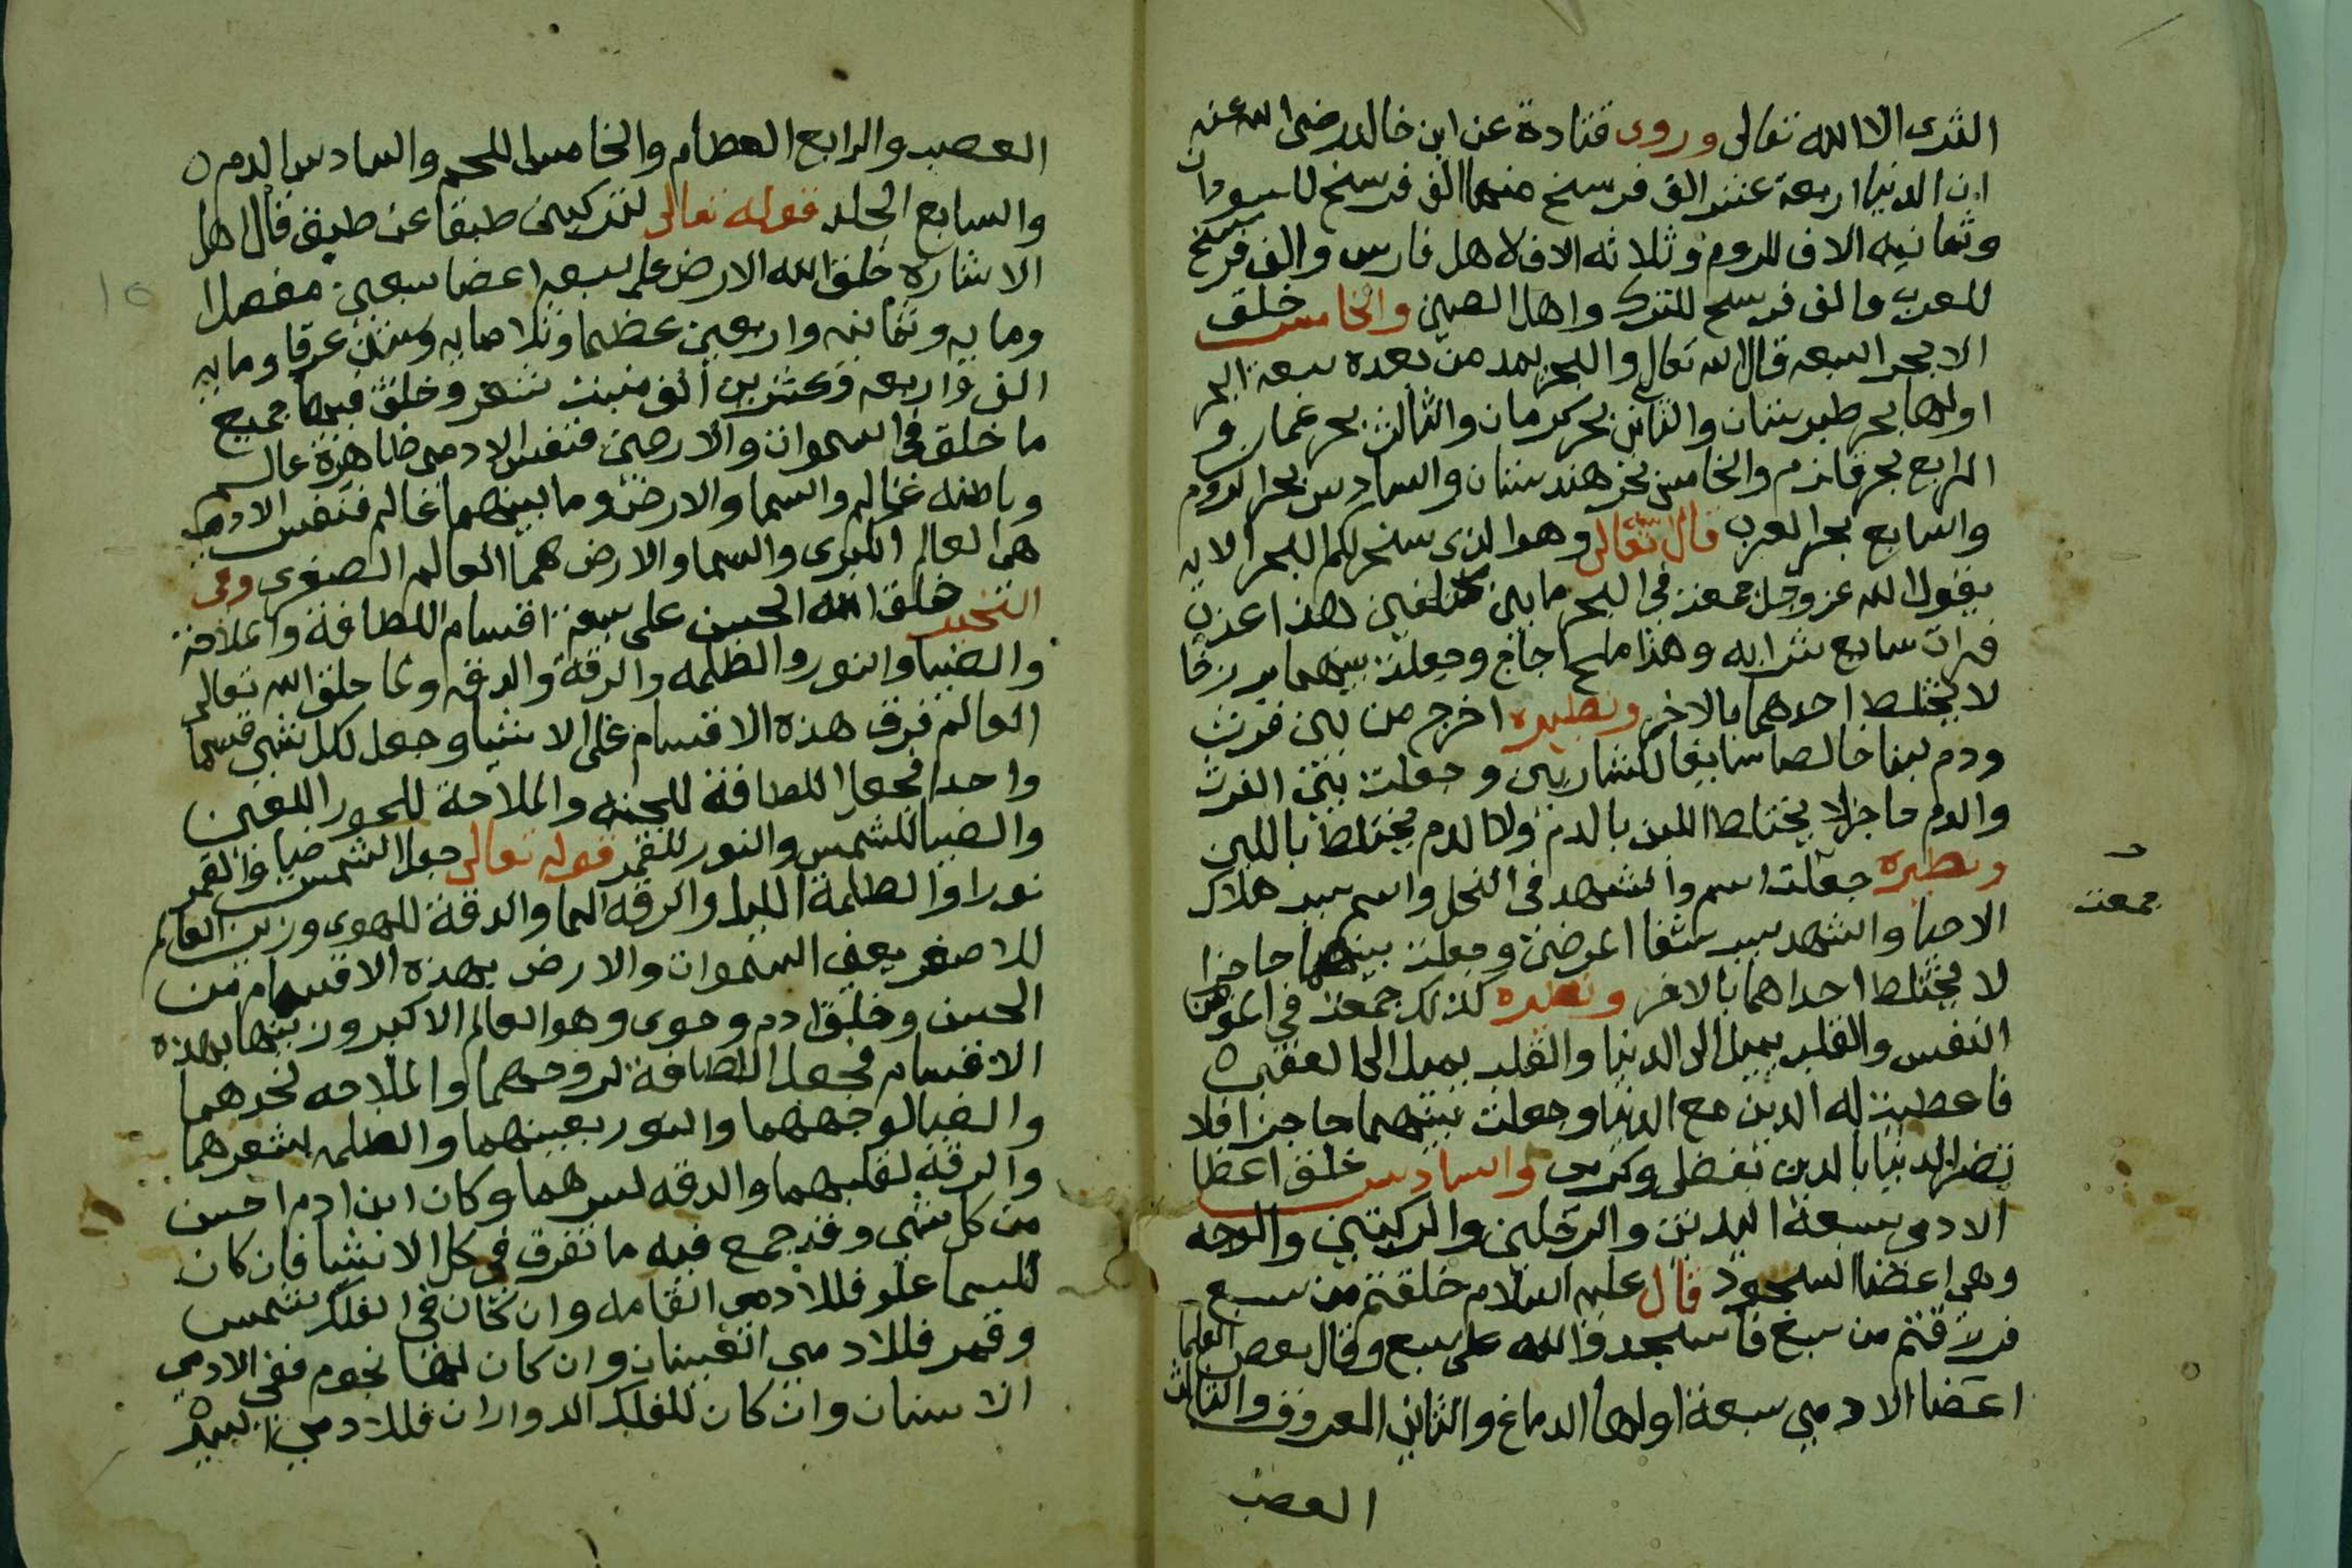 الثرى الا الله تعالى وروى قتادة عن ابن خالد رضى الله عنه
ان الدنيا اربعة عشر الف فرسخ منها الف فرسخ للسودان
وثمانيه الاف للروم وثلاثه الاف لاهل فارس والف فرسخ
للعرب والف فرسخ للترك واهل الصين والخامس خلق
الابحر السبعه قال الله تعالى والبحر يمد من بعده سبعة ابحر
اولها بحر طبرستان والثانى بحر كرمان والثالث بحر عمان و
الرابع بحر قلزم والخامس بحر هندستان والسادس بحر الروم
والسابع بحر العرب قال تعالى وهو الذى سخر لكم البحر الايه
يقول الله عز وجل جمعت فى البحر ما بين مختلفين هذا عذب
فرات سايع شرابه وهذا ملح اجاج وجعلت بينهما برزخا
لا يختلط احدهما بالاخر ونظيره اخرج من بين فرث
ودم لبنا خالصا سايغا للشاربين وجعلت بين الفرث
والدم حاجزا لا يختلط اللبن بالدم ولا الدم يختلط باللبن
ونظيره جعلت اسم والشهد فى النحل واسم سبب هلاك
الاحيا والشهد سبب شفا المرضى وجعلت بينهما حاجزا
لا يختلط احداهما بالاخر ونظيره كذلك جمعت في المومن
النفس والقلب يميل الى الدنيا والقلب يميل الى العقبى
فاعطيت له الدين مع الدنيا وجعلت بينهما حاجزا فلا
تضر الدنيا بالدين بفضلى وكرمى والسادس خلق اعضا
الادمى سبعة اليدين والرجلين والركبتين والوجه
وهى اعضا السجود قال عليه السلام خلقتم من سبع
فرزقتم من سبع فاسجدوا لله على سبع وقال بعض العلما
اعضا الادمي سبعة اولها الدماغ والثانى العروق والثالث
العصب
جمعت
العصب والرابع العظام والخامس اللحم والسادس الدم
والسابع الجلد قوله تعالى لتركبن طبقا عن طبق قال اهل
الاشاره خلق الله الارض على سبعه اعضا سبعين مفصلا
ومايه وثمانيه واربعين عظما وثلاثمايه وستين عرقا ومايه
الف واربعه وعشرين الف منبت شعر وخلق فيها جميع
ما خلق فى السموات والارضين فنفس الادمى ظاهرة عالم
وباطنه عالم والسما والارض وما بينهما عالم فنفس الادمى
هى العالم الكبرى والسما والارض هما العالم الصغرى وفى
خلق الله الحسن على سبعة اقسام اللطافة والملاحة
والضيا والنور والظلمه والرقة والدقه ولما خلق الله تعالى
العالم فرق هذه الاقسام على الاشيا وجعل لكل شى قسما
واحدا فجعل اللطافة للجنه والملاحة للحور العين
والضيا للشمس والنور للقمر قوله تعالى جعل الشمس ضيا والقمر
نورا والظلمة الليل والرقه الما والدقة للهوى وزين العالم
للاصغر يعنى السموات والارض بهذه الاقسام من
الحسن وخلق ادم وحوى وهو العالم الاكبر وزينها بهذه
الاقسام فجعل اللطافة لروحهما والملاحه لخدهما
والضيا لوجههما والنور بعينهما والظلمه لشعرهما
والرقة لقلبهما والدقه لسرهما وكان ابن ادم احسن
من كل شى وقد جمع فيه ما تفرق فى كل الاشيا فان كان
للسما علو فللادمى القامه وان كان فى الفلك شمس
وقمر فللادمي العينان وان كان لها نجوم ففى الادمي
الاسنان وان كان للفلك الدوران فللادمي السير
١٥